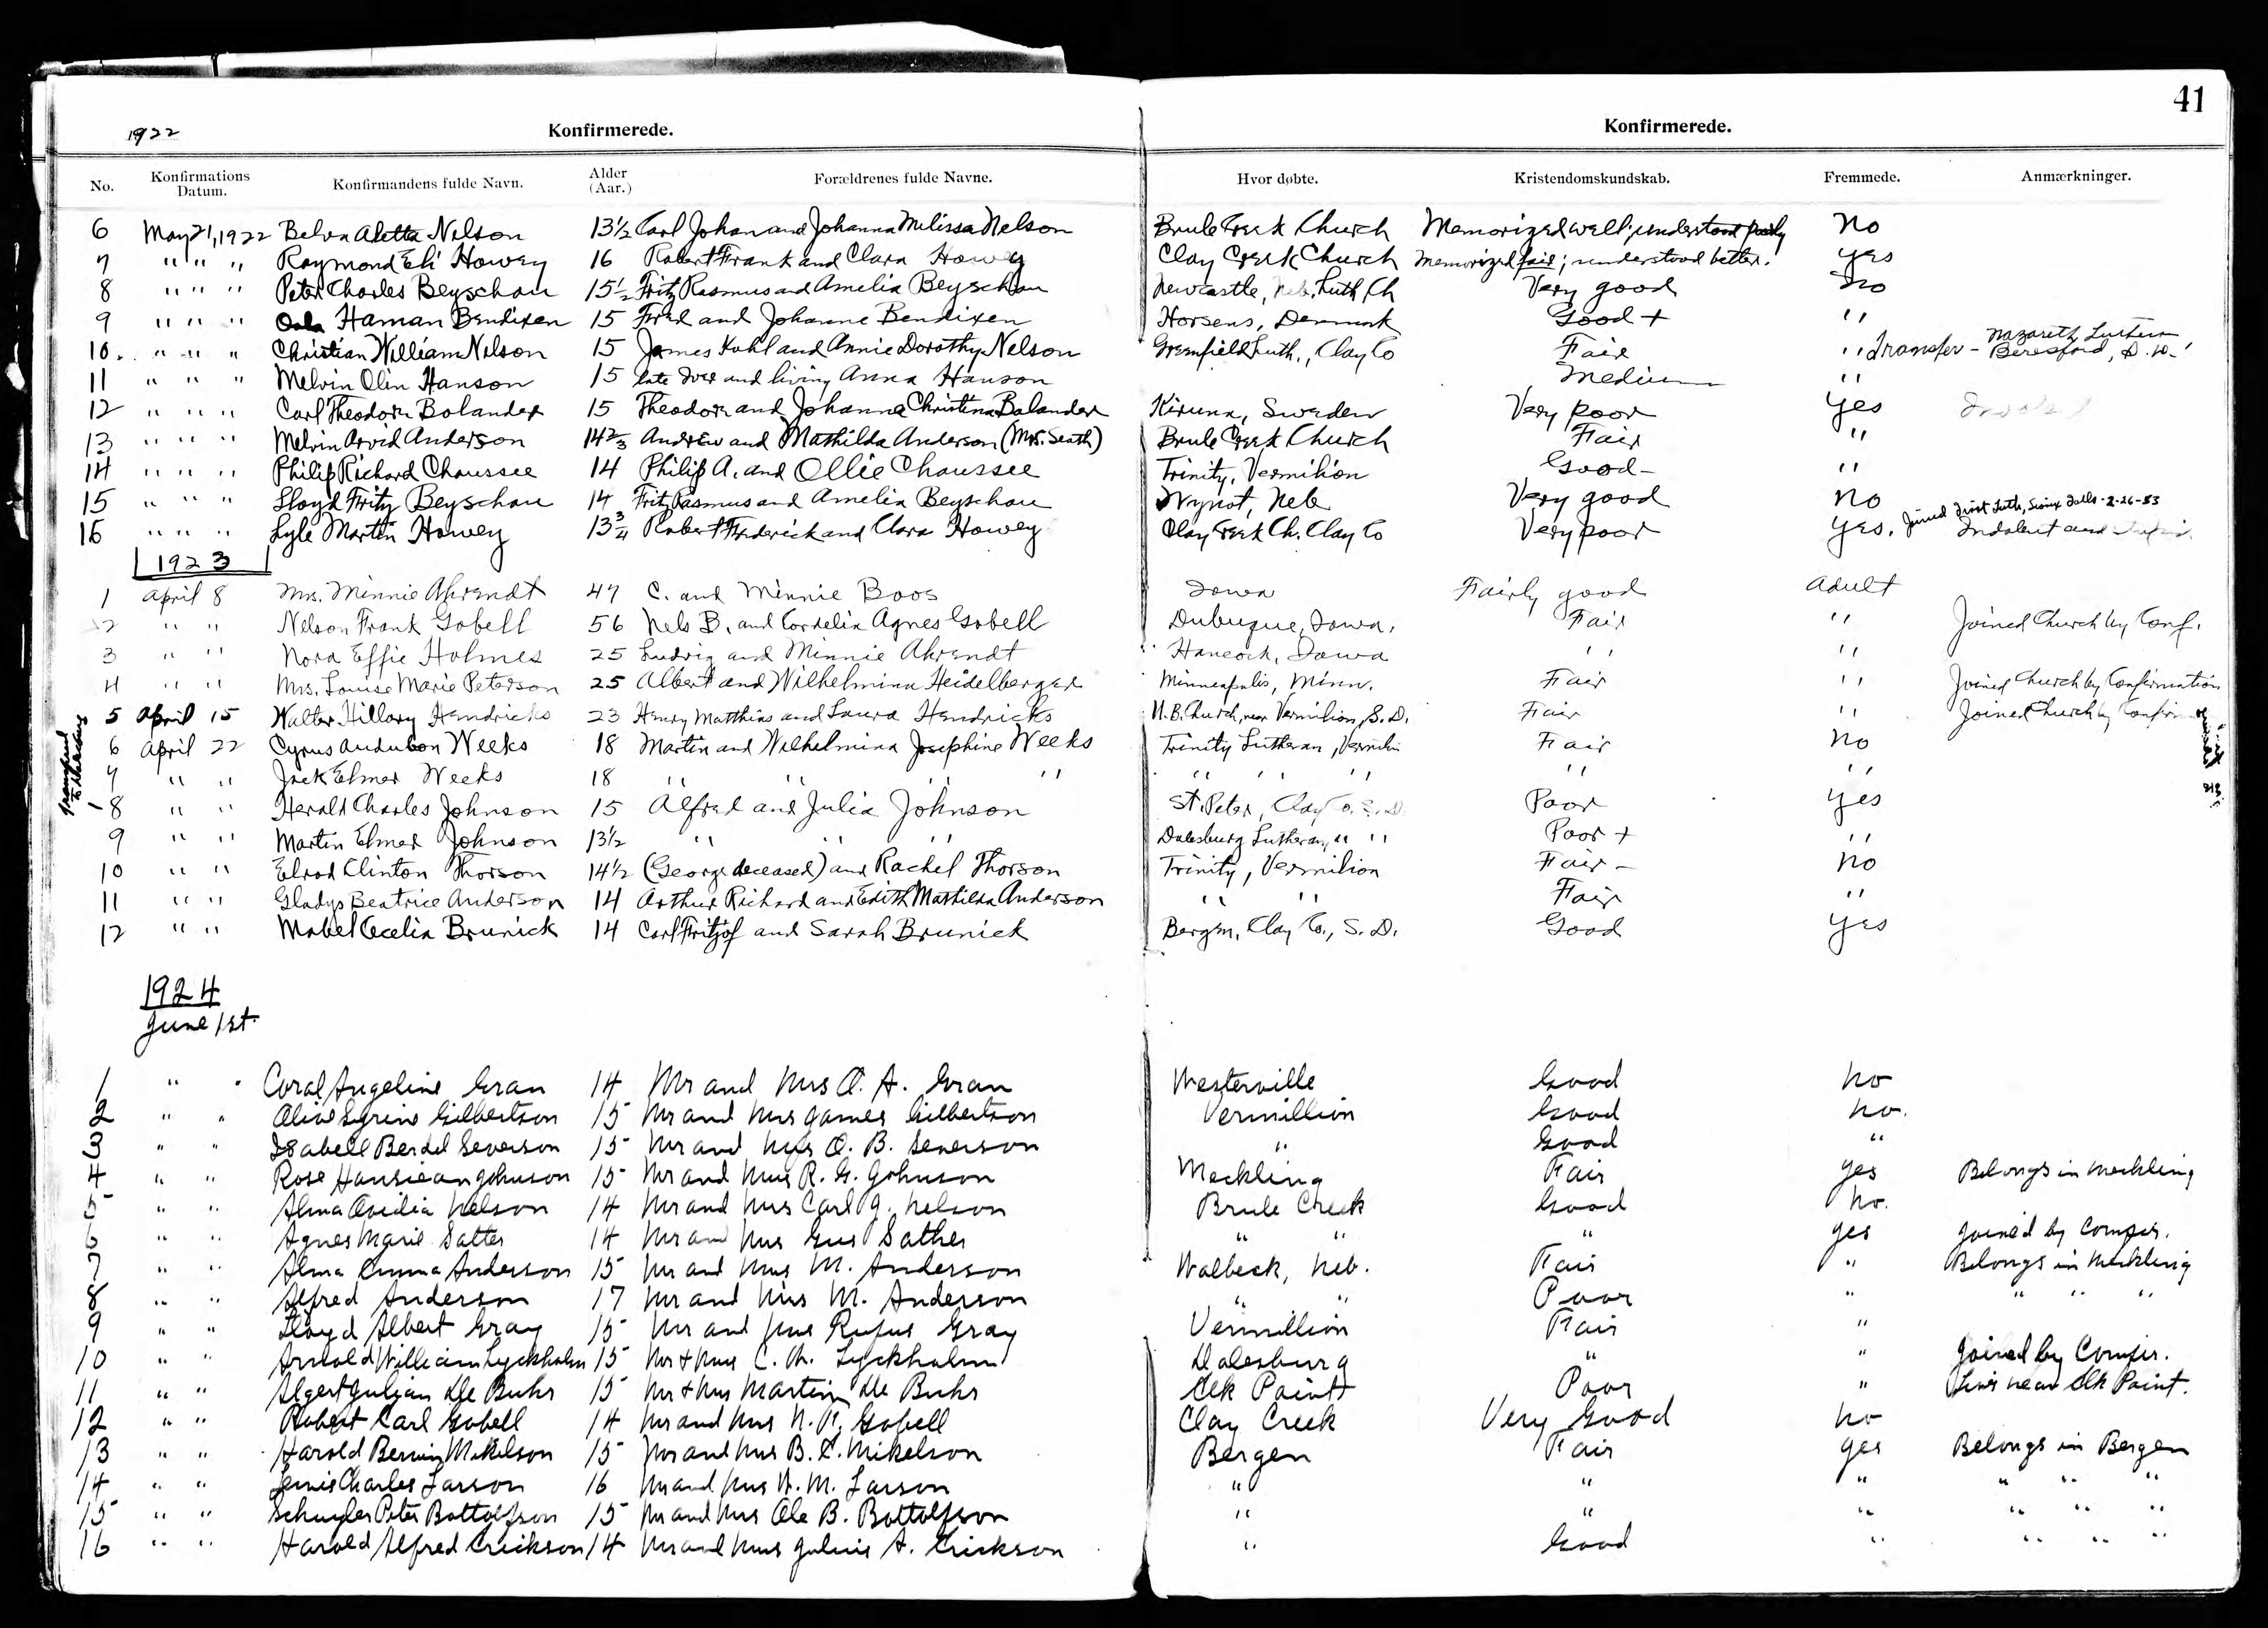 41
1922 Konfirmerede. Konfirmerede.
No. Konfirmations Datum. Konfirmandens fulde Navn. Alder (Aar.) Forældrenes fulde Navne. Hvor døbte. Kristendomskundskab. Fremmede. Anmærkninger.
6 May 21, 1922 Belva Aletta Nelson 13½ Carl Johan and Johanna Milissa Nelson Brule Creek Church Memorized well; understood poorly No
7 " " " Raymond Eli Howey 16 Robert Frank and Clara Howey Clay Creek Church Memorized fair; understood better. Yes
8 " " " Peter Charles Beyschau 15½ Fritz Rasmus and Amelia Beyschau Newcastle, Neb. Luth Ch Very good No
9 " " " Haman Bendixen 15 Fred and Johanne Bendixen Horsens, Denmark Good + "
10. " " " Christian William Nelson 15 James Kuhl and Annie Dorothy Nelson Greenfield Luth., Clay Co Fair " Transfer - Nazareth Luthern Beresford, S.D.
11 " " " Melvin Olin Hanson 15 late Iver and living Anna Hanson Medium "
12 " " " Carl Theodore Bolander 15 Theodore and Johanna Christina Bolander Kiruna, Sweden Very poor Yes
13 " " " Melvin Arvid Anderson 14⅔ Andrew and Mathilda Anderson (Mrs. Seath) Brule Creek Church Fair "
14 " " " Philip Richard Chaussee 14 Philip A. and Ollie Chaussee Trinity, Vermilion Good - "
15 " " " Lloyd Fritz Beyschau 14 Fritz Rasmus and Amelia Beyschau Wynot, Neb Very good No
16 " " " Lyle Martin Howey 13¾ Robert Frederick and Clara Howey Clay Creek Ch. Clay Co Very poor Yes. Joined First Luth, Sioux Falls - 2-26-53 Indolent and
1923
1 April 8 Mrs. Minnie Ahrendt 47 C. and Minnie Boos Iowa Fairly good Adult
2 " " Nelson Frank Gobell 56 Nels B. and Cordelia Agnes Gobell Dubuque, Iowa, Fair " Joined Church by Conf.
3 " " Nora Effie Holmes 25 Ludvig and Minnie Ahrendt Hancock, Iowa " "
4 " " Mrs. Louise Marie Peterson 25 Albert and Wilhelmina Heidelberger Minneapolis, Minn. Fair " Joined Church by Confirmation
5 April 15 Walter Hillary Hendricks 23 Henry Matthias and Laura Hendricks U.B. Church, near Vermilion, S.D. Fair " Joined Church by Confirm
6 April 22 Cyrus Audubon Weeks 18 Martin and Wilhelmina Josephine Weeks Trinity Lutheran, Vermilion Fair No
7 " " Jack Elmer Weeks 18 " " " " " " " " "
8 " " Herald Charles Johnson 15 Alfred and Julia Johnson St. Peter, Clay Co. S.D. Poor Yes
9 " " Martin Elmer Johnson 13½ " " " Dalesburg Lutheran, " " Poor + "
10 " " Elrod Clinton Thorson 14½ (George deceased) and Rachel Thorson Trinity, Vermilion Fair - No
11 " " Gladys Beatrice Anderson 14 Arthur Richard and Edith Mathilda Anderson " " Fair "
12 " " Mabel Cecelia Brunick 14 Carl Fritjof and Sarah Brunick Bergen, Clay Co., S.D. Good Yes
1924
June 1st.
1 " " Coral Angeline Gran 14 Mr and Mrs O. A. Gran Westerville Good No
2 " " Gilbertson 15 Mr and Mrs James Gilbertson Vermillion Good no.
3 " " Isabell Berdel Severson 15 Mr and Mrs O. B. Severson " Good "
4 " " Rose Johnson 15 Mr and Mrs R. G. Johnson Meckling Fair yes Belongs in Meckling
5 " " Alma Ovidia Nelson 14 Mr and Mrs Carl J. Nelson Brule Creek Good no.
6 " " Agnes Marie Satter 14 Mr and Mrs Gus Sather " " " yes Joined by Confir.
7 " " Alma Emma Anderson 15 Mr and Mrs M. Anderson Walbeck, Neb. Fair " Belongs in Meckling
8 " " Alfred Anderson 17 Mr and Mrs M. Anderson " " Poor " " " "
9 " " Lloyd Albert Gray 15 Mr and Mrs Rufus Gray Vermillion Fair "
10 " " Arnold William Lyckholm 15 Mr & Mrs C. M. Lyckholm Dalesburg " " Joined by Confir.
11 " " Algert Julian De Buhr 15 Mr & Mrs Martin De Buhr Elk Point Poor " Lives near Elk Point.
12 " " Robert Carl Gobell 14 Mr and Mrs N. F. Gobell Clay Creek Very Good no
13 " " Harold Mikelson 15 Mr and Mrs B. C. Mikelson Bergen Fair yes Belongs in Bergen
14 " " Lewis Charles Larson 16 Mr and Mrs H. M. Larson " " " " " "
15 " " Schuyler Peter Bottolfson 15 Mr and Mrs Ole B. Bottolfson " " " " " "
16 " " Harold Alfred Erickson 14 Mr and Mrs Julius A. Erickson " Good " " " "